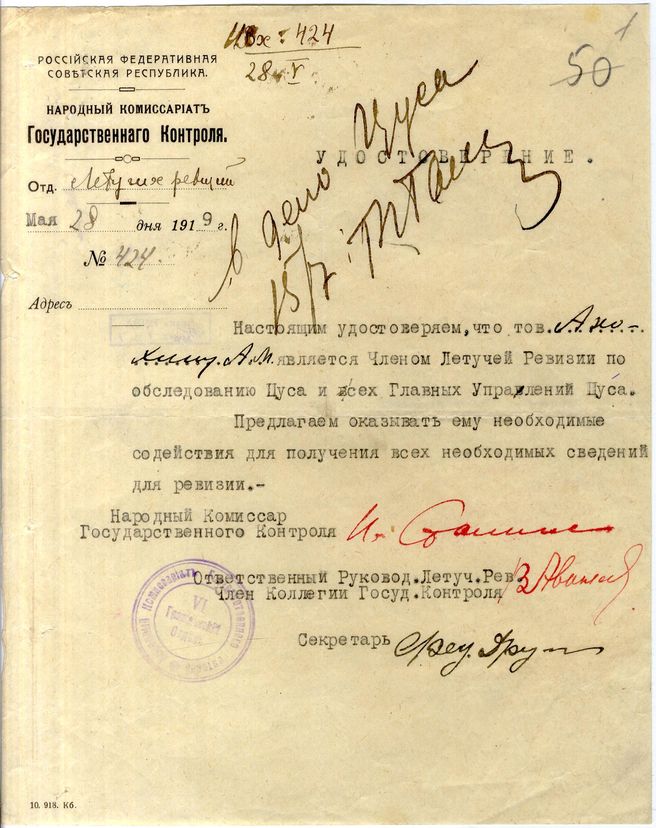 Вх: 424
28 V
1
50
РОССІЙСКАЯ ФЕДЕРАТИВНАЯ
СОВѢТСКАЯ РЕСПУБЛИКА.
НАРОДНЫЙ КОМИССАРІАТЪ
Государственнаго Контроля.
Отд. Летучих ревизий
Мая 28 дня 1919 г.
№ 424
Адресъ
в дело Цуса
15/
УДОСТОВЕРЕНИЕ.
Настоящим удостоверяем,что тов. Ано-
хину А.М. является Членом Летучей Ревизии по
обследованию Цуса и всех Главных Управлений Цуса.
Предлагаем оказывать ему необходимые
содействия для получения всех необходимых сведений
для ревизии.-
Народный Комиссар
Государственного Контроля И. Сталин
Ответственный Руковод.Летуч.Рев.
Член Коллегии Госуд.Контроля
Секретарь
VI
10. 918. Кб.